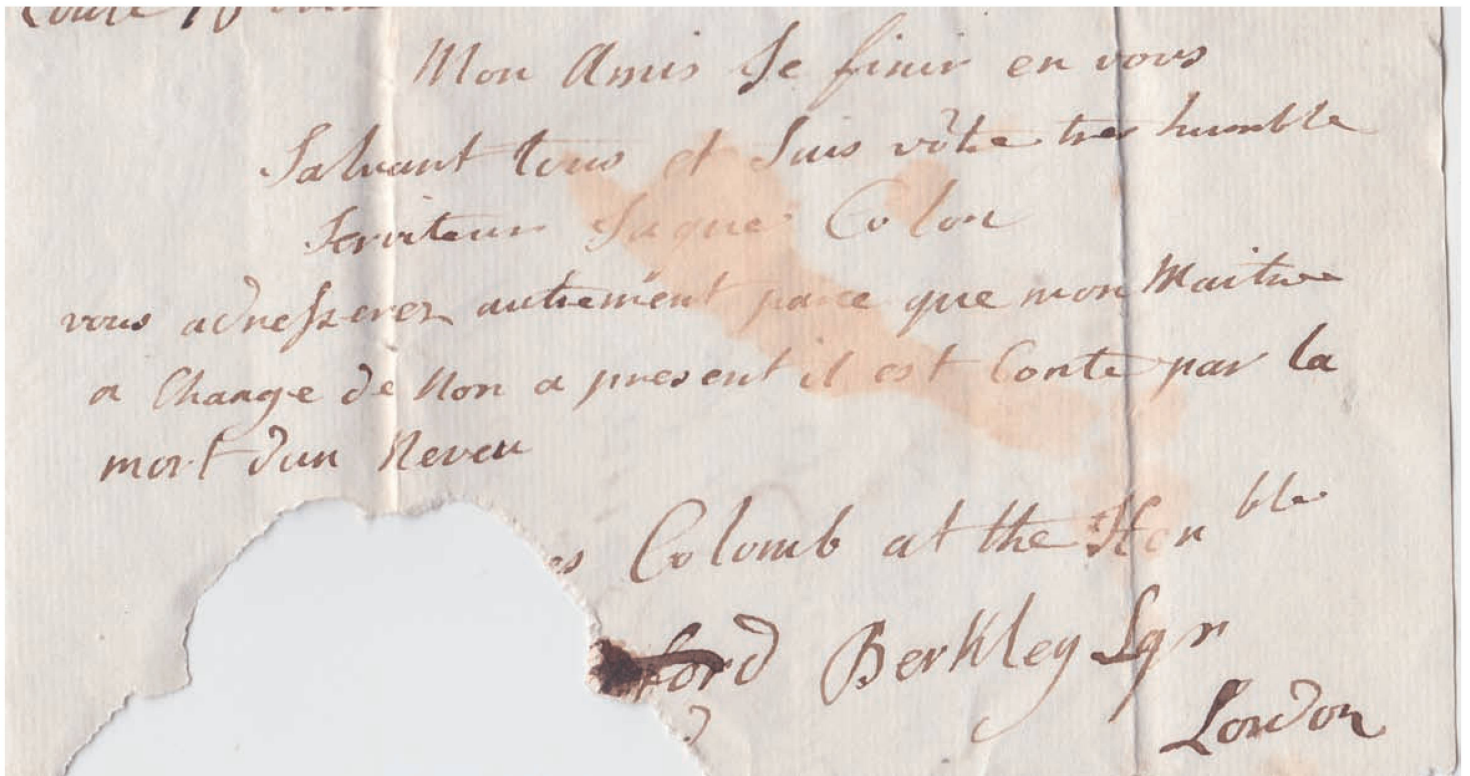 Mon Amis Je finir en vous
Saluant tous et suis vôtre tres humble
Serviteur Jaque Colon
vous adresserez autrement parce que mon Maitre
a Change de Non a present il est Conte par la
mort dun Neveu
es Colomb at the Hon ble
ford Berkley Sqr
London